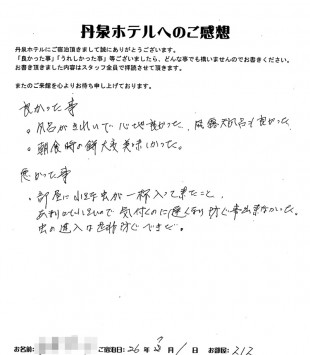 丹泉ホテルへのご感想
丹泉ホテルにご宿泊頂きまして誠にありがとうございます。
「良かった事」「うれしかった事」等ございましたら、どんな事でも構いませんのでお書きください。
お書き頂きました内容はスタッフ全員で拝読させて頂きます。
またのご来館を心よりお待ち申し上げております。
良かった事
。風呂がきれいで心地良かった。 風呂も良かった
。朝食時の鮭大変美味しかった。
悪かった事
・部屋に小さな虫が一杯入って来たこと
あまりに小さいので気付くのに遅くなり防ぐ事出来なかった。
虫の進入は是非防ぐべきだ。
お名前: ご宿泊日: 26 年 月 1 日 お部屋: 212